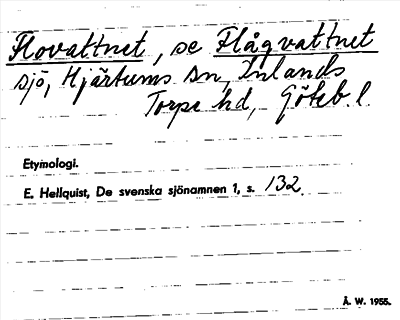 Flovattnet, se Flågvattnet
sjö, Hjärtums sn, Inlands
Torpe hd, Göteb. l.
Etymologi.
E. Hellquist, De svenska sjönamnen 1, s. 132.
Å. W. 1955.